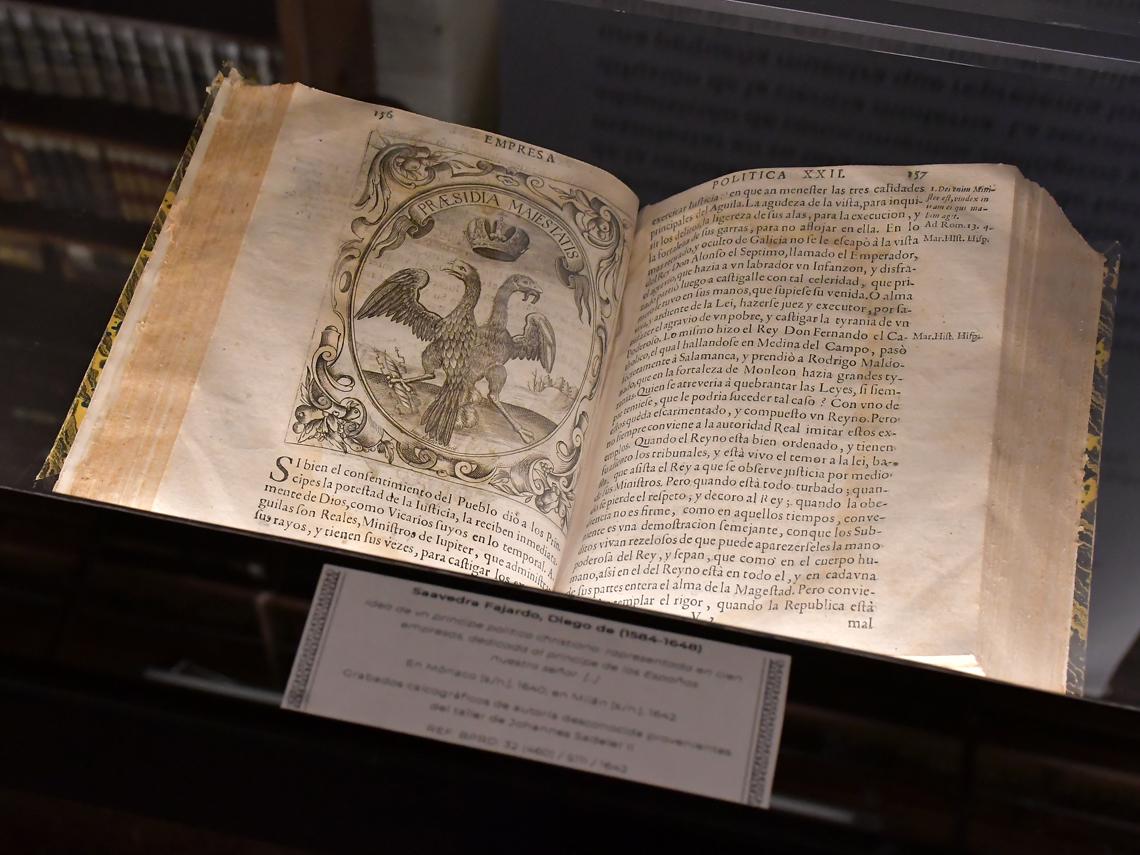 156
EMPRESA
PRÆSIDIA MAIESTATIS
SI bien el consentimiento del Pueblo diò a los Prin-
cipes la potestad de la Iusticia, la reciben inmediata-
mente de Dios, como Vicarios suyos en lo temporal. A-
guilas son Reales, Ministros de Iupiter, que administran
sus rayos, y tienen sus vezes, para castigar los
POLITICA XXII. 157
exercitar Iusticia: en que an menester las tres calidades
principales del Aguila. La agudeza de la vista, para inqui-
rir los delitos, la ligereza de sus alas, para la execucion, y
la fortaleza de sus garras, para no aflojar en ella. En lo
mas retirado, y oculto de Galicia no se le escapò à la vista
del Rey Don Alonso el Septimo, llamado el Emperador,
el agravio, que hazia a vn labrador vn Infanzon, y disfra-
zado partiò luego a castigalle con tal celeridad, que pri-
mero le tuvo en sus manos, que supiese su venida. O alma
viva, ardiente de la Lei, hazerse juez y executor, por sa-
tisfazer el agravio de vn pobre, y castigar la tyrania de vn
Poderoso. Lo mismo hizo el Rey Don Fernando el Ca-
tholico, el qual hallandose en Medina del Campo, pasò
secretamente à Salamanca, y prendiò a Rodrigo Maldo-
nado, que en la fortaleza de Monleon hazia grandes ty-
ranias. Quien se atreveria à quebrantar las Leyes, si siem-
pre temiese, que le podria suceder tal caso? Con vno de
ellos queda escarmentado, y compuesto vn Reyno. Pero
no siempre conviene a la autoridad Real imitar estos ex-
emplos. Quando el Reyno esta bien ordenado, y tienen
su asiento los tribunales, y està vivo el temor a la lei, ba-
sta, que asista el Rey a que se observe justicia por medio
de sus Ministros. Pero quando està todo turbado; quan-
do se pierde el respeto, y decoro al Rey; quando la obe-
diencia no es firme, como en aquellos tiempos, conve-
niente es vna demostracion semejante, con que los Sub-
ditos vivan rezelosos de que puede aparezerseles la mano
poderosa del Rey, y sepan, que como en el cuerpo hu-
mano, assi en el del Reyno està en todo el, y en cada vna
de sus partes entera el alma de la Magestad. Pero convie-
templar el rigor, quando la Republica està
V 3
mal
1. Dei enim Mini-
ster est, vindex in
iram ei qui ma-
lum agit.
Ad Rom. 13. 4.
Mar. Hist. Hisp.
Mar. Hist. Hisp.
Saavedra Fajardo, Diego de (1584-1648)
Idea de un príncipe político christiano: representada en cien
empresas, dedicada al príncipe de las Españas
nuestro señor [...]
En Mónaco [s/n], 1640, en Milán [s/n], 1642
Grabados calcográficos de autoría desconocida provenientes
del taller de Johannes Sadeler II